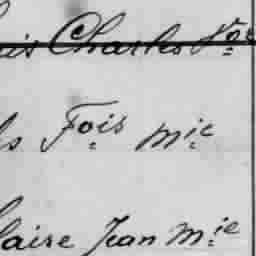 is Charles Vor
s Fois mie
laire Jean Mie